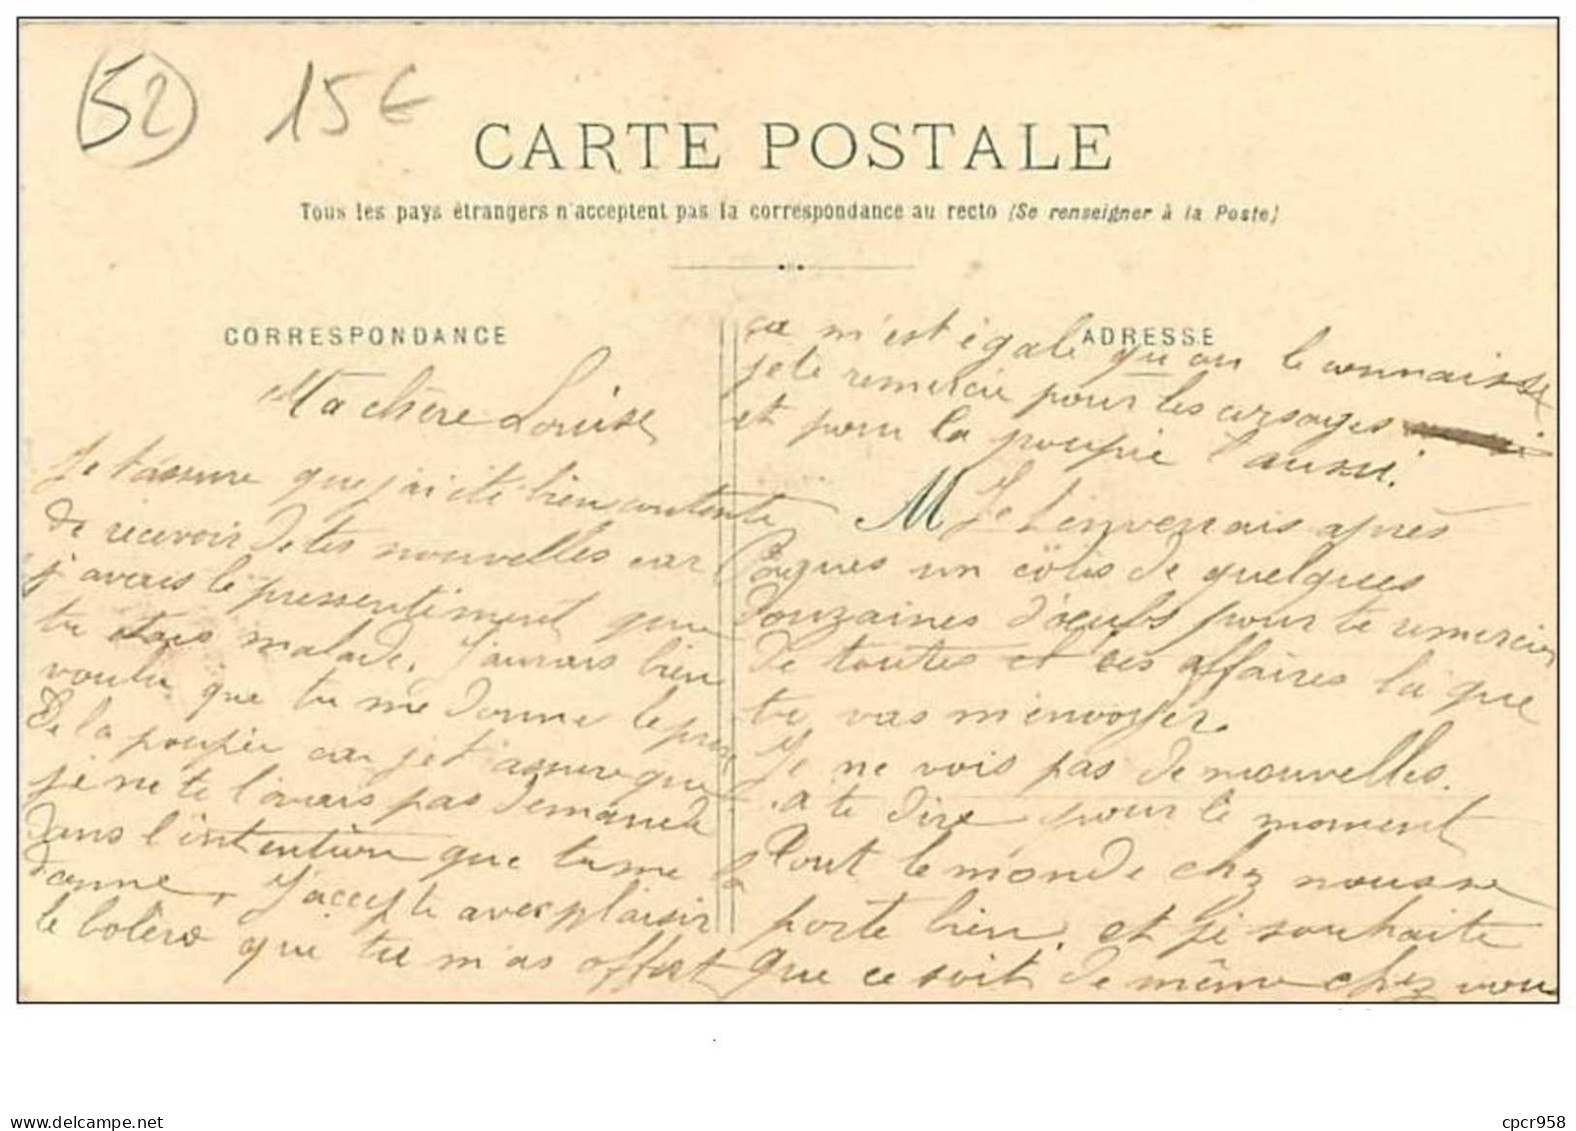 52 15€
CARTE POSTALE
Tous les pays étrangers n'acceptent pas la correspondance au recto (Se renseigner à la Poste)
CORRESPONDANCE
Ma chère Louise
Je t'assure que j'ai été bien contente
de recevoir de tes nouvelles car
j'avais le pressentiment que
tu étais malade. J'aurais bien
voulu que tu me donne le prix
de la poupée car je t'assure que
je ne te l'avais pas demandé
dans l'intention que tu me la
donne. J'accepte avec plaisir
le boléro que tu m'as offert
ADRESSE
ça m'est égale qu'on le connaisse
je te remercie pour les corsages
et pour la poupée aussi.
M Je t'enverrais après
Pâques un côlis de quelques
douzaines d'œufs pour te remercier
de toutes et ces affaires là que
tu vas m'envoyer.
Je ne vois pas de nouvelles
a te dire pour le moment
Tout le monde chez nous se
porte bien. et je souhaite
que ce soit de même chez vous
www.delcampe.net
cpcr958